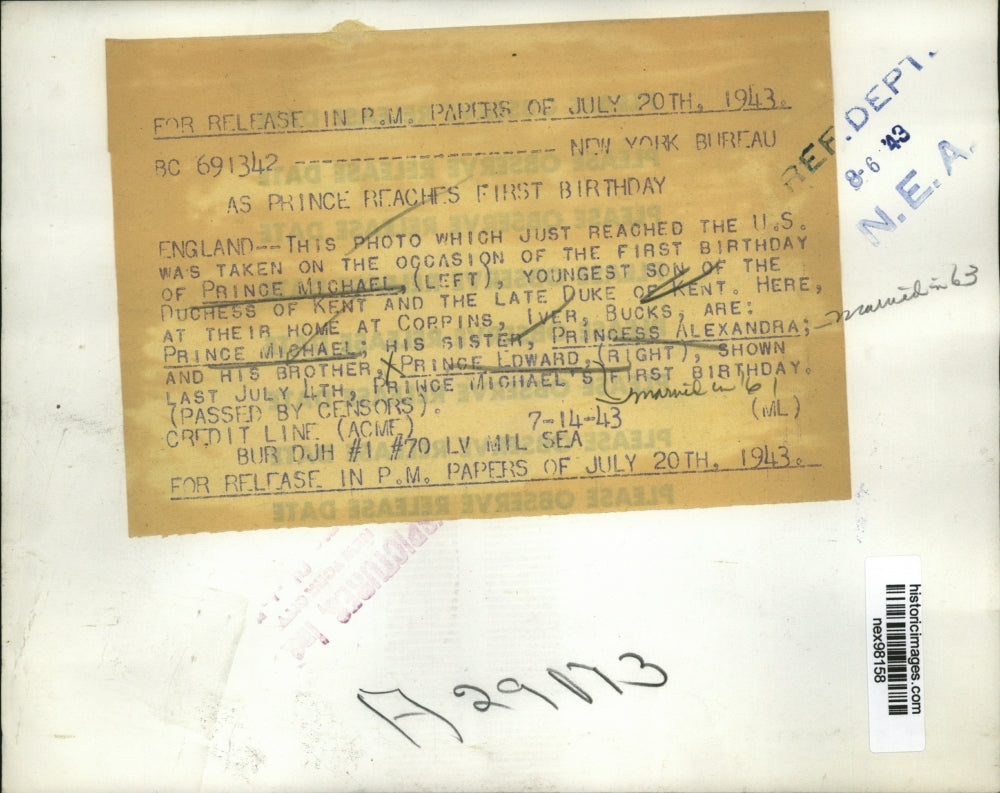 FOR RELEASE IN P.M. PAPERS OF JULY 20TH, 1943.
BC 691342 ----------------------- NEW YORK BUREAU
AS PRINCE REACHES FIRST BIRTHDAY
ENGLAND--THIS PHOTO WHICH JUST REACHED THE U.S.
WAS TAKEN ON THE OCCASION OF THE FIRST BIRTHDAY
OF PRINCE MICHAEL, (LEFT), YOUNGEST SON OF THE
DUCHESS OF KENT AND THE LATE DUKE OF KENT. HERE,
AT THEIR HOME AT COPPINS, IVER, BUCKS, ARE:
PRINCE MICHAEL, HIS SISTER, PRINCESS ALEXANDRA;
AND HIS BROTHER, PRINCE EDWARD, (RIGHT), SHOWN
LAST JULY 4TH, PRINCE MICHAEL'S FIRST BIRTHDAY.
(PASSED BY CENSORS).
CREDIT LINE (ACME) 7-14-43 (ML)
BUR DJH #1 #70 LV MIL SEA
FOR RELEASE IN P.M. PAPERS OF JULY 20TH, 1943.
married in 63
married in '61
REF. DEPT.
8-6 '43
N.E.A.
PLEASE OBSERVE RELEASE DATE
PLEASE OBSERVE RELEASE DATE
PLEASE OBSERVE RELEASE DATE
PLEASE OBSERVE RELEASE DATE
historicimages.com
nex98158